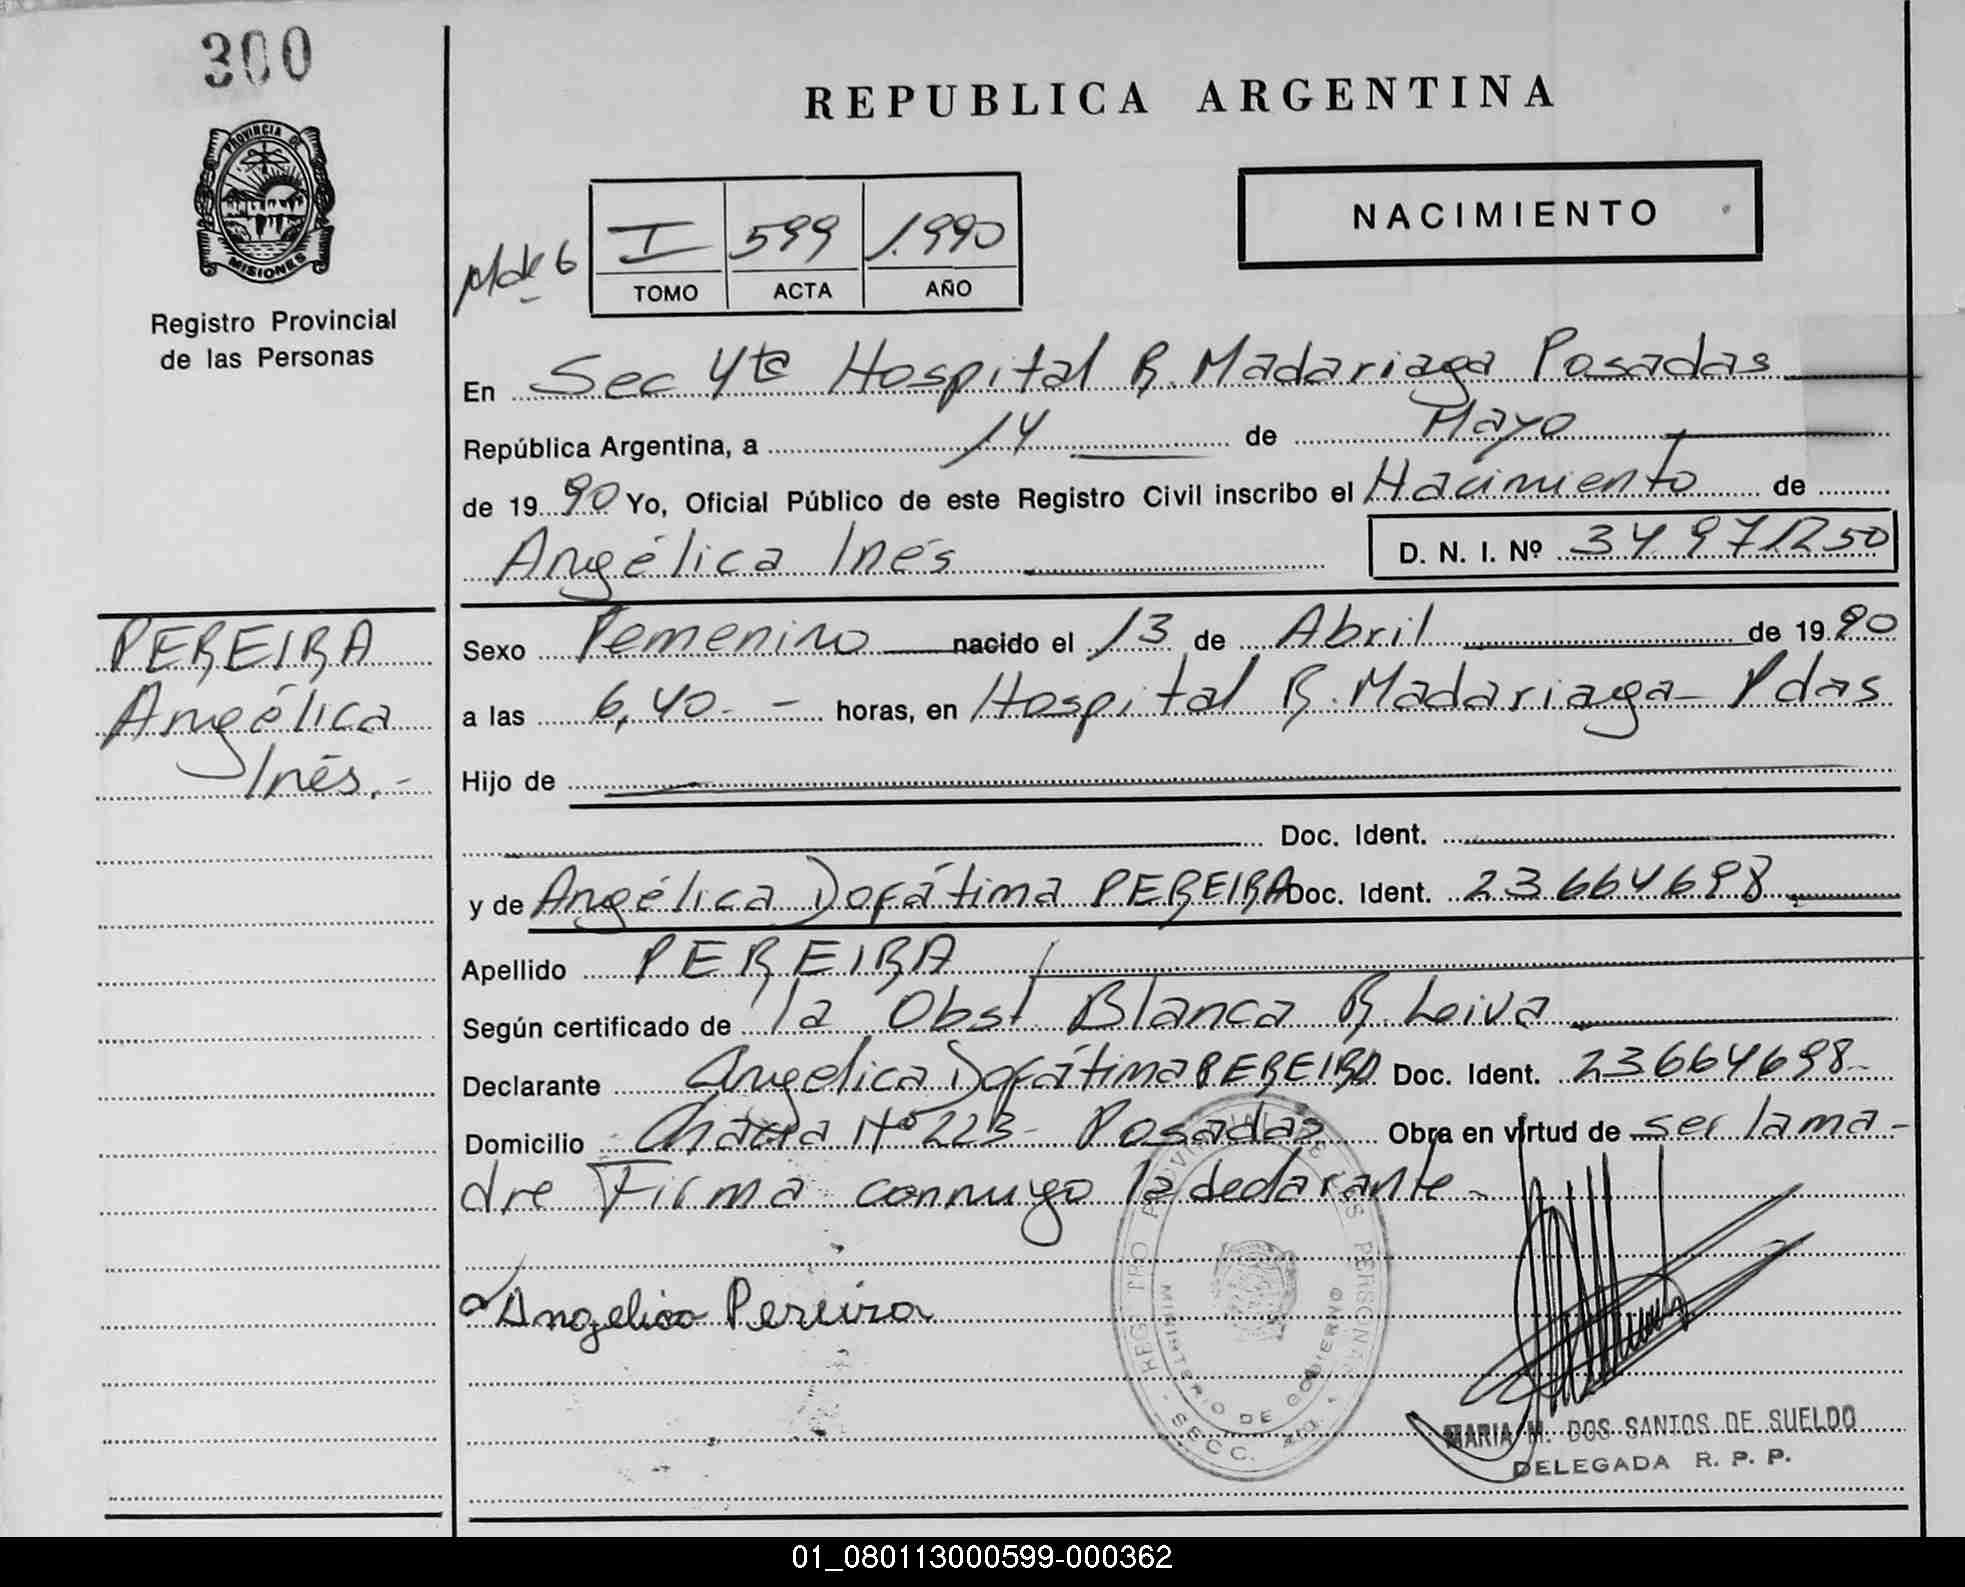 300
PROVINCIA DE
MISIONES
Registro Provincial
de las Personas
REPUBLICA ARGENTINA
I 599 1.990
TOMO ACTA AÑO
NACIMIENTO
En Sec 4ta Hospital R. Madariaga Posadas
República Argentina, a 14 de Mayo
de 1990 Yo, Oficial Público de este Registro Civil inscribo el Nacimiento de
Angélica Inés D. N. I. Nº 34971250
PEREIRA
Angélica
Inés.-
Sexo Femenino nacido el 13 de Abril de 1990
a las 6,40.- horas, en Hospital R. Madariaga- Pdas
Hijo de
Doc. Ident.
y de Angélica Dofátima PEREIRA Doc. Ident. 23664698.
Apellido PEREIRA
Según certificado de la Obst Blanca R. Leiva
Declarante Angelica Dofátima PEREIRA Doc. Ident. 23664698-
Domicilio Chacra Nº 223- Posadas Obra en virtud de ser la ma-
dre Firma conmygo la declarante-
Angelica Pereira
REGISTRO PROVINCIAL DE LAS PERSONAS
MINISTERIO DE GOBIERNO
SECC.
MARIA M. DOS SANTOS DE SUELDO
DELEGADA R. P. P.
01_080113000599-000362